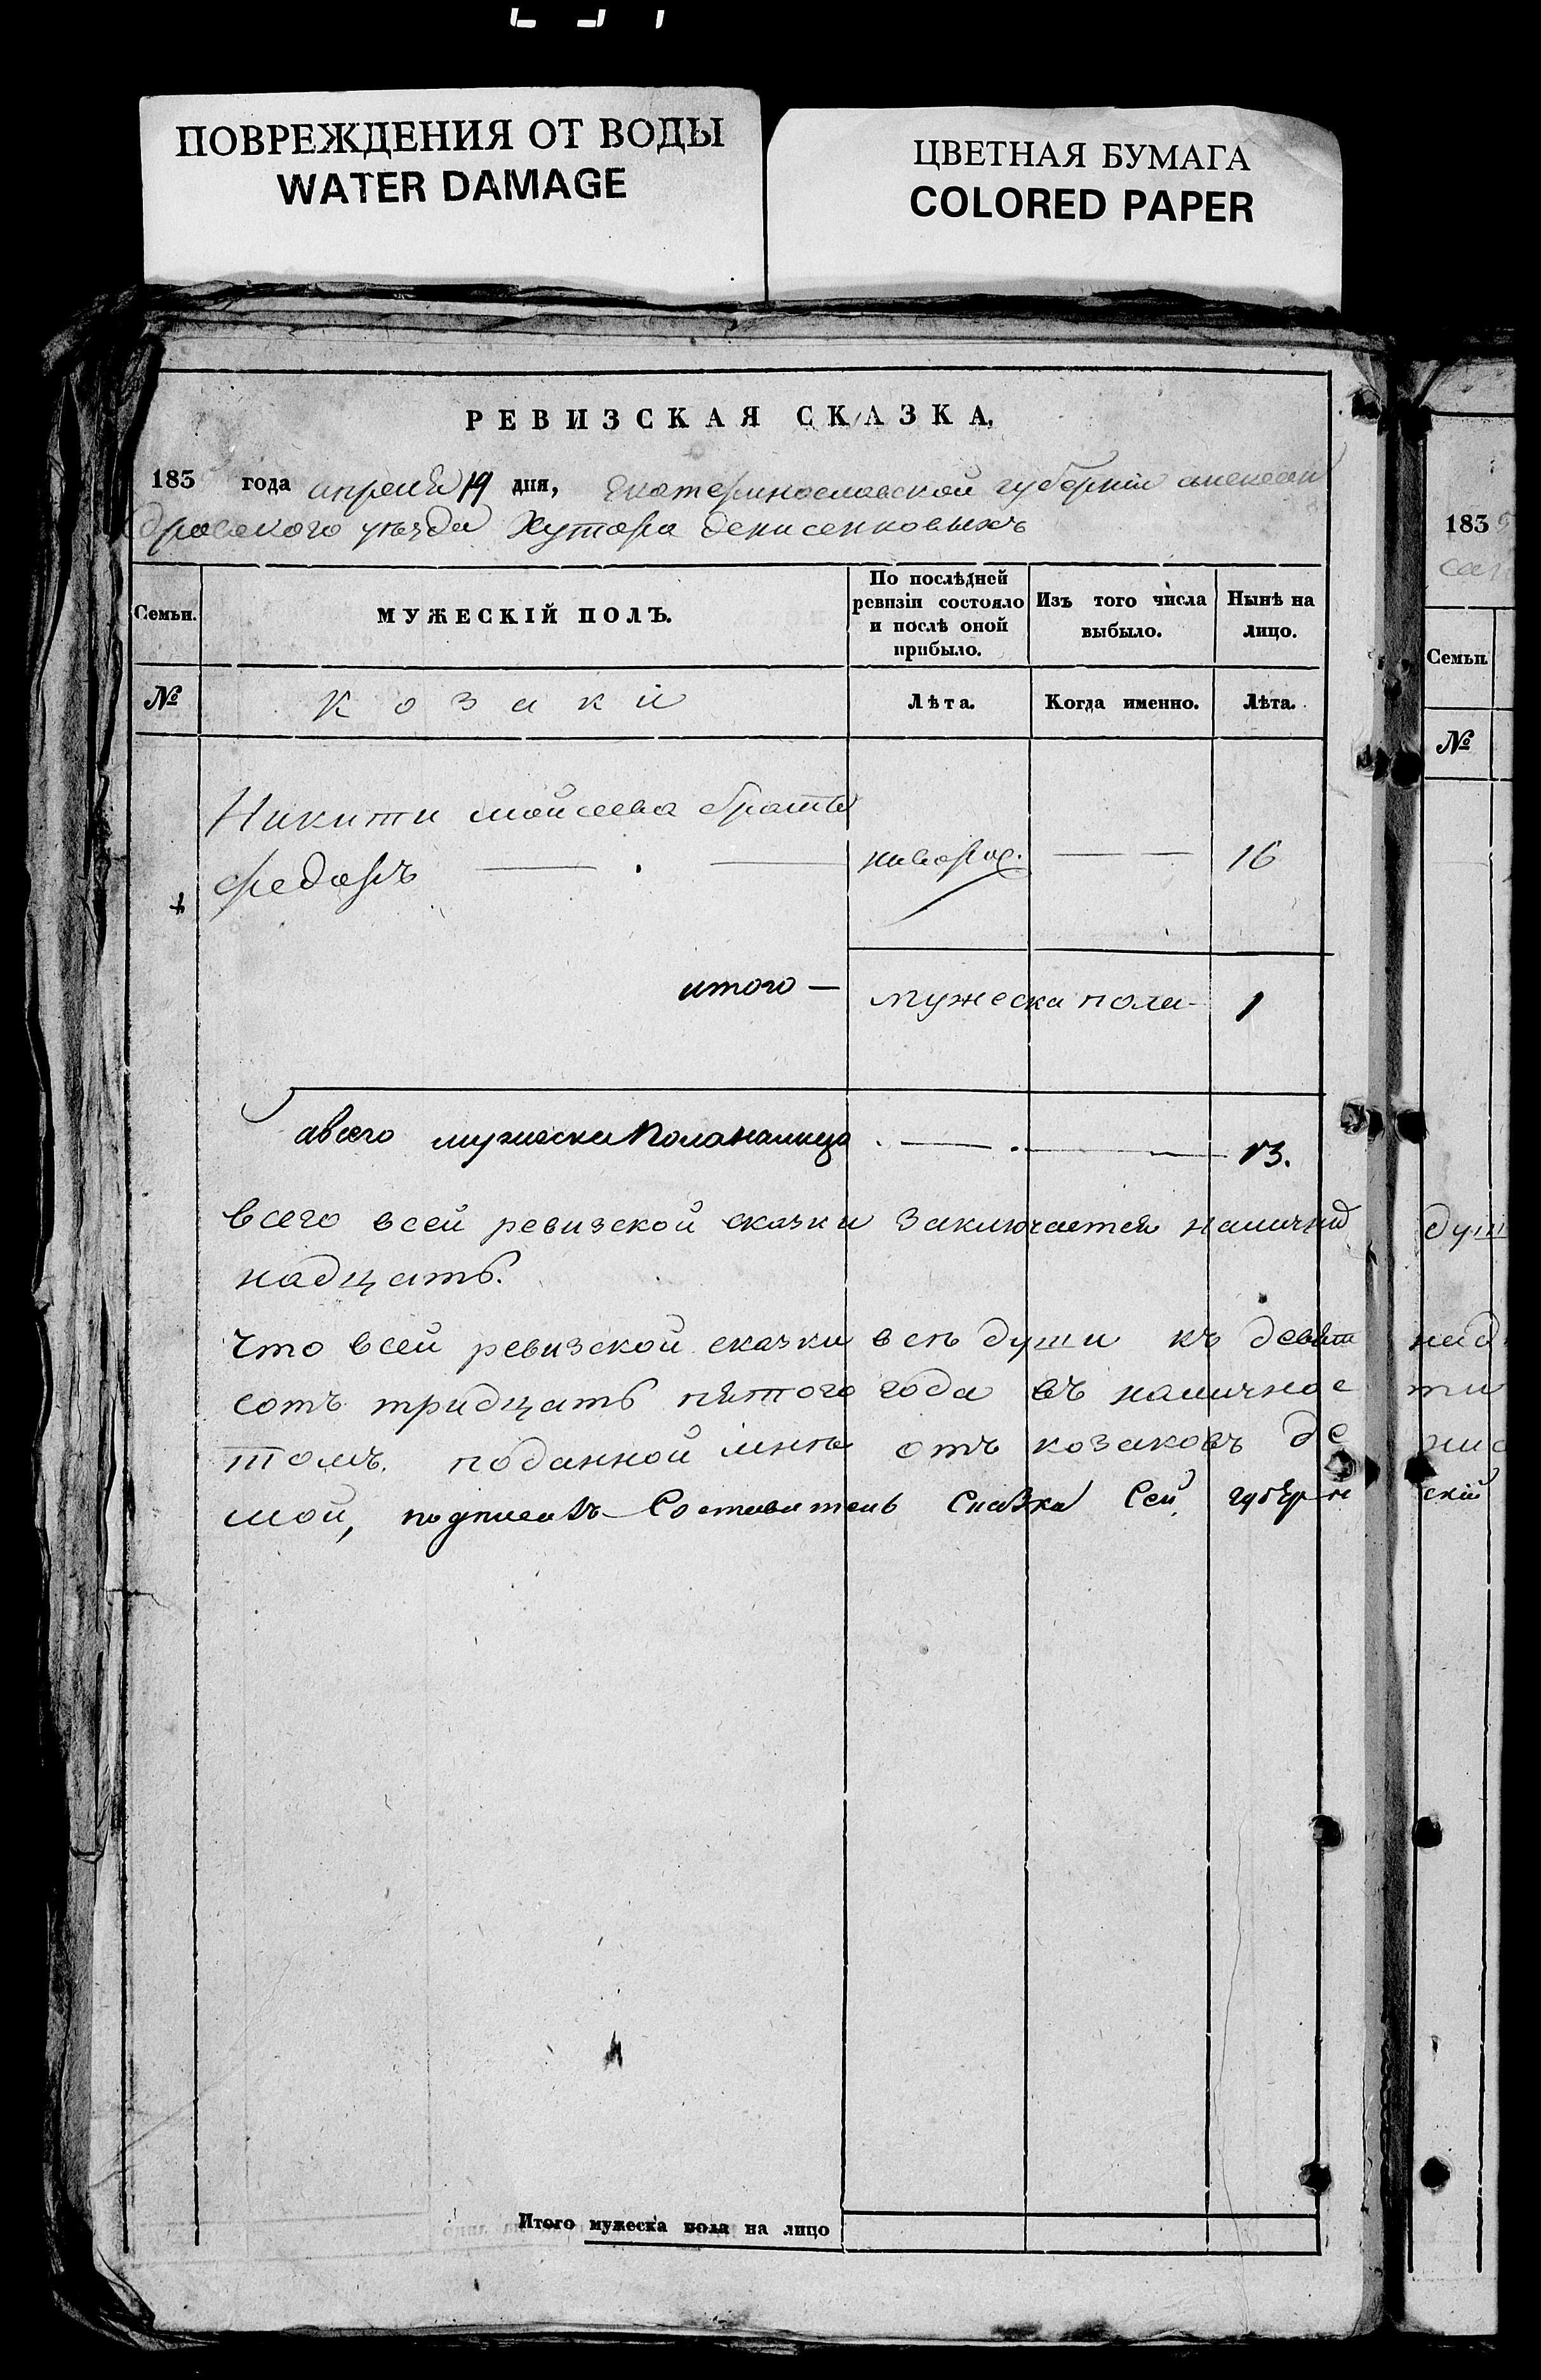 ПОВРЕЖДЕНИЯ ОТ ВОДЫ
WATER DAMAGE
ЦВЕТНАЯ БУМАГА
COLORED PAPER
РЕВИЗСКАЯ СКАЗКА,
183 года апреля 19 дня, Екатеринославской губернiи алексан
дровскаго уѣзда Хутора денисенковыхъ
Семьи.
МУЖЕСКІЙ ПОЛЪ.
По послѣдней ревизіи состояло и послѣ оной прибыло.
Изъ того числа выбыло.
Нынѣ на лицо.
№
козаки
Лѣта.
Когда именно.
Лѣта.
Никиты мойсеева братъ
федоръ
16
итого — мужеска пола 1
авсего мужеска пола налицо 13.
всего всей ревизской сказки заключается
надцать.
что всей ревизской сказки всѣ души къ девят
сотъ тридцать пятого года въ налично е
томъ поданной мнѣ отъ козаковъ де
мой, подписалъ Составитель Сказки Сей губерн
Итого мужеска пола на лицо
183
Семьи.
№
душ
скій